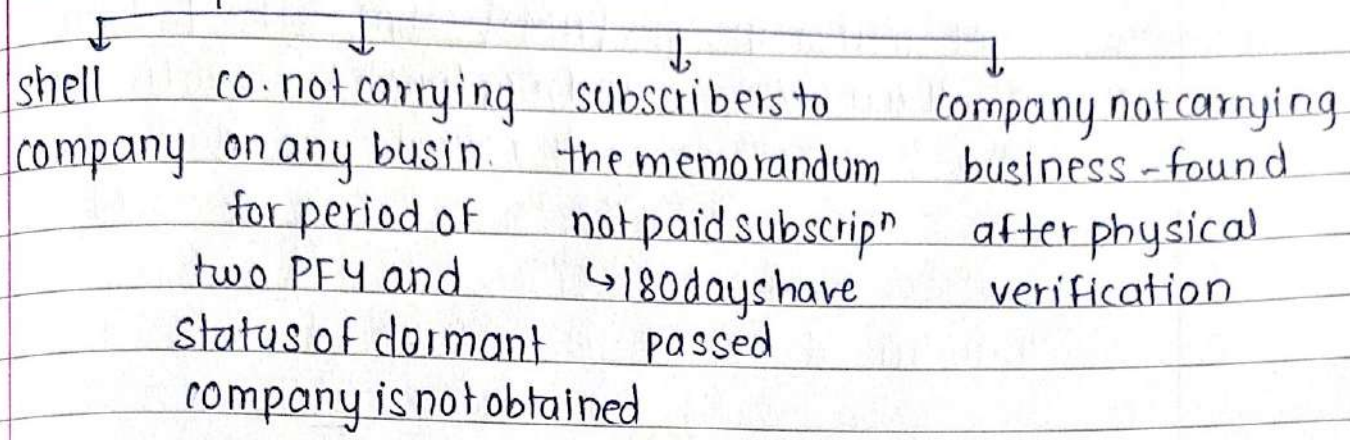 shell
company
co. not carrying
on any busin.
for period of
two PFY and
status of dormant
company is not obtained
subscribers to
the memorandum
not paid subscripⁿ
↳180 days have
passed
company not carrying
business - found
after physical
verification